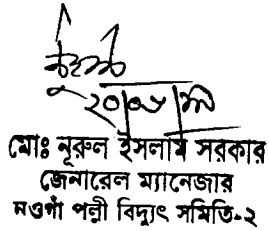 মোঃ নূরুল ইসলাম সরকার
জেনারেল ম্যানেজার
নওগাঁ পল্লী বিদ্যুৎ সমিতি-২